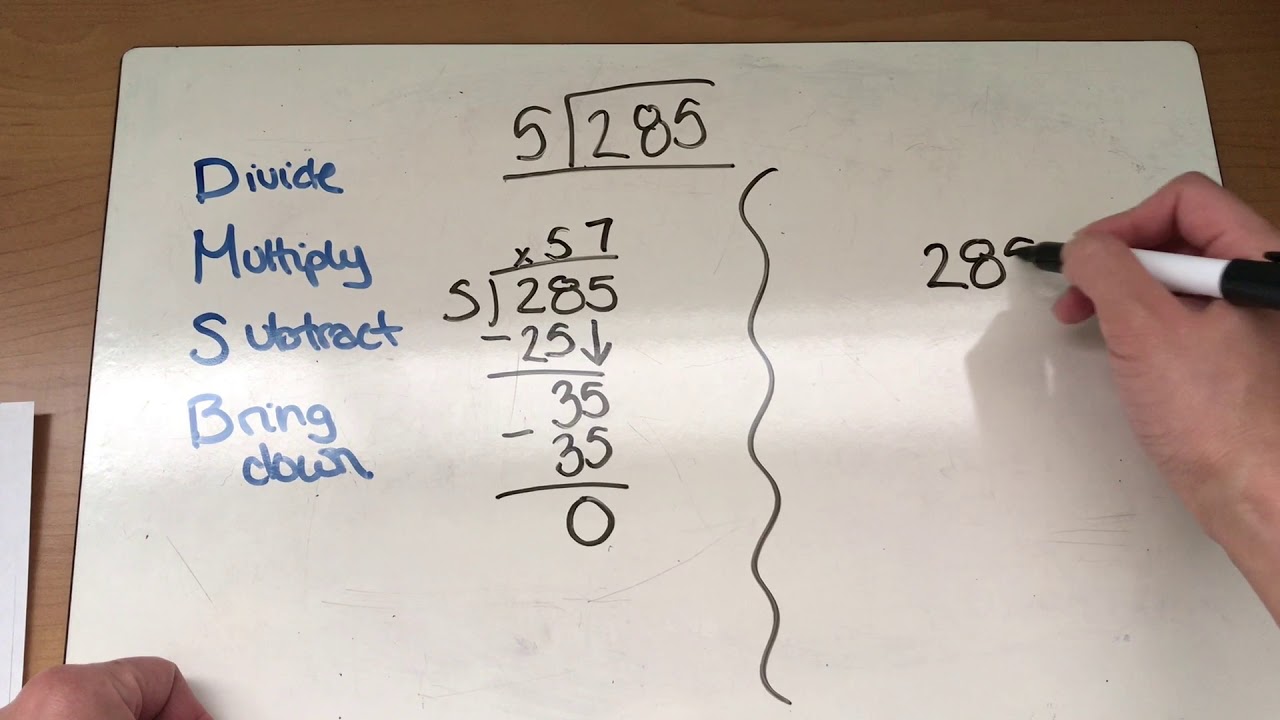 5)285
Divide
Multiply
Subtract
Bring
down
x57
5)285
-25↓
35
- 35
0
285